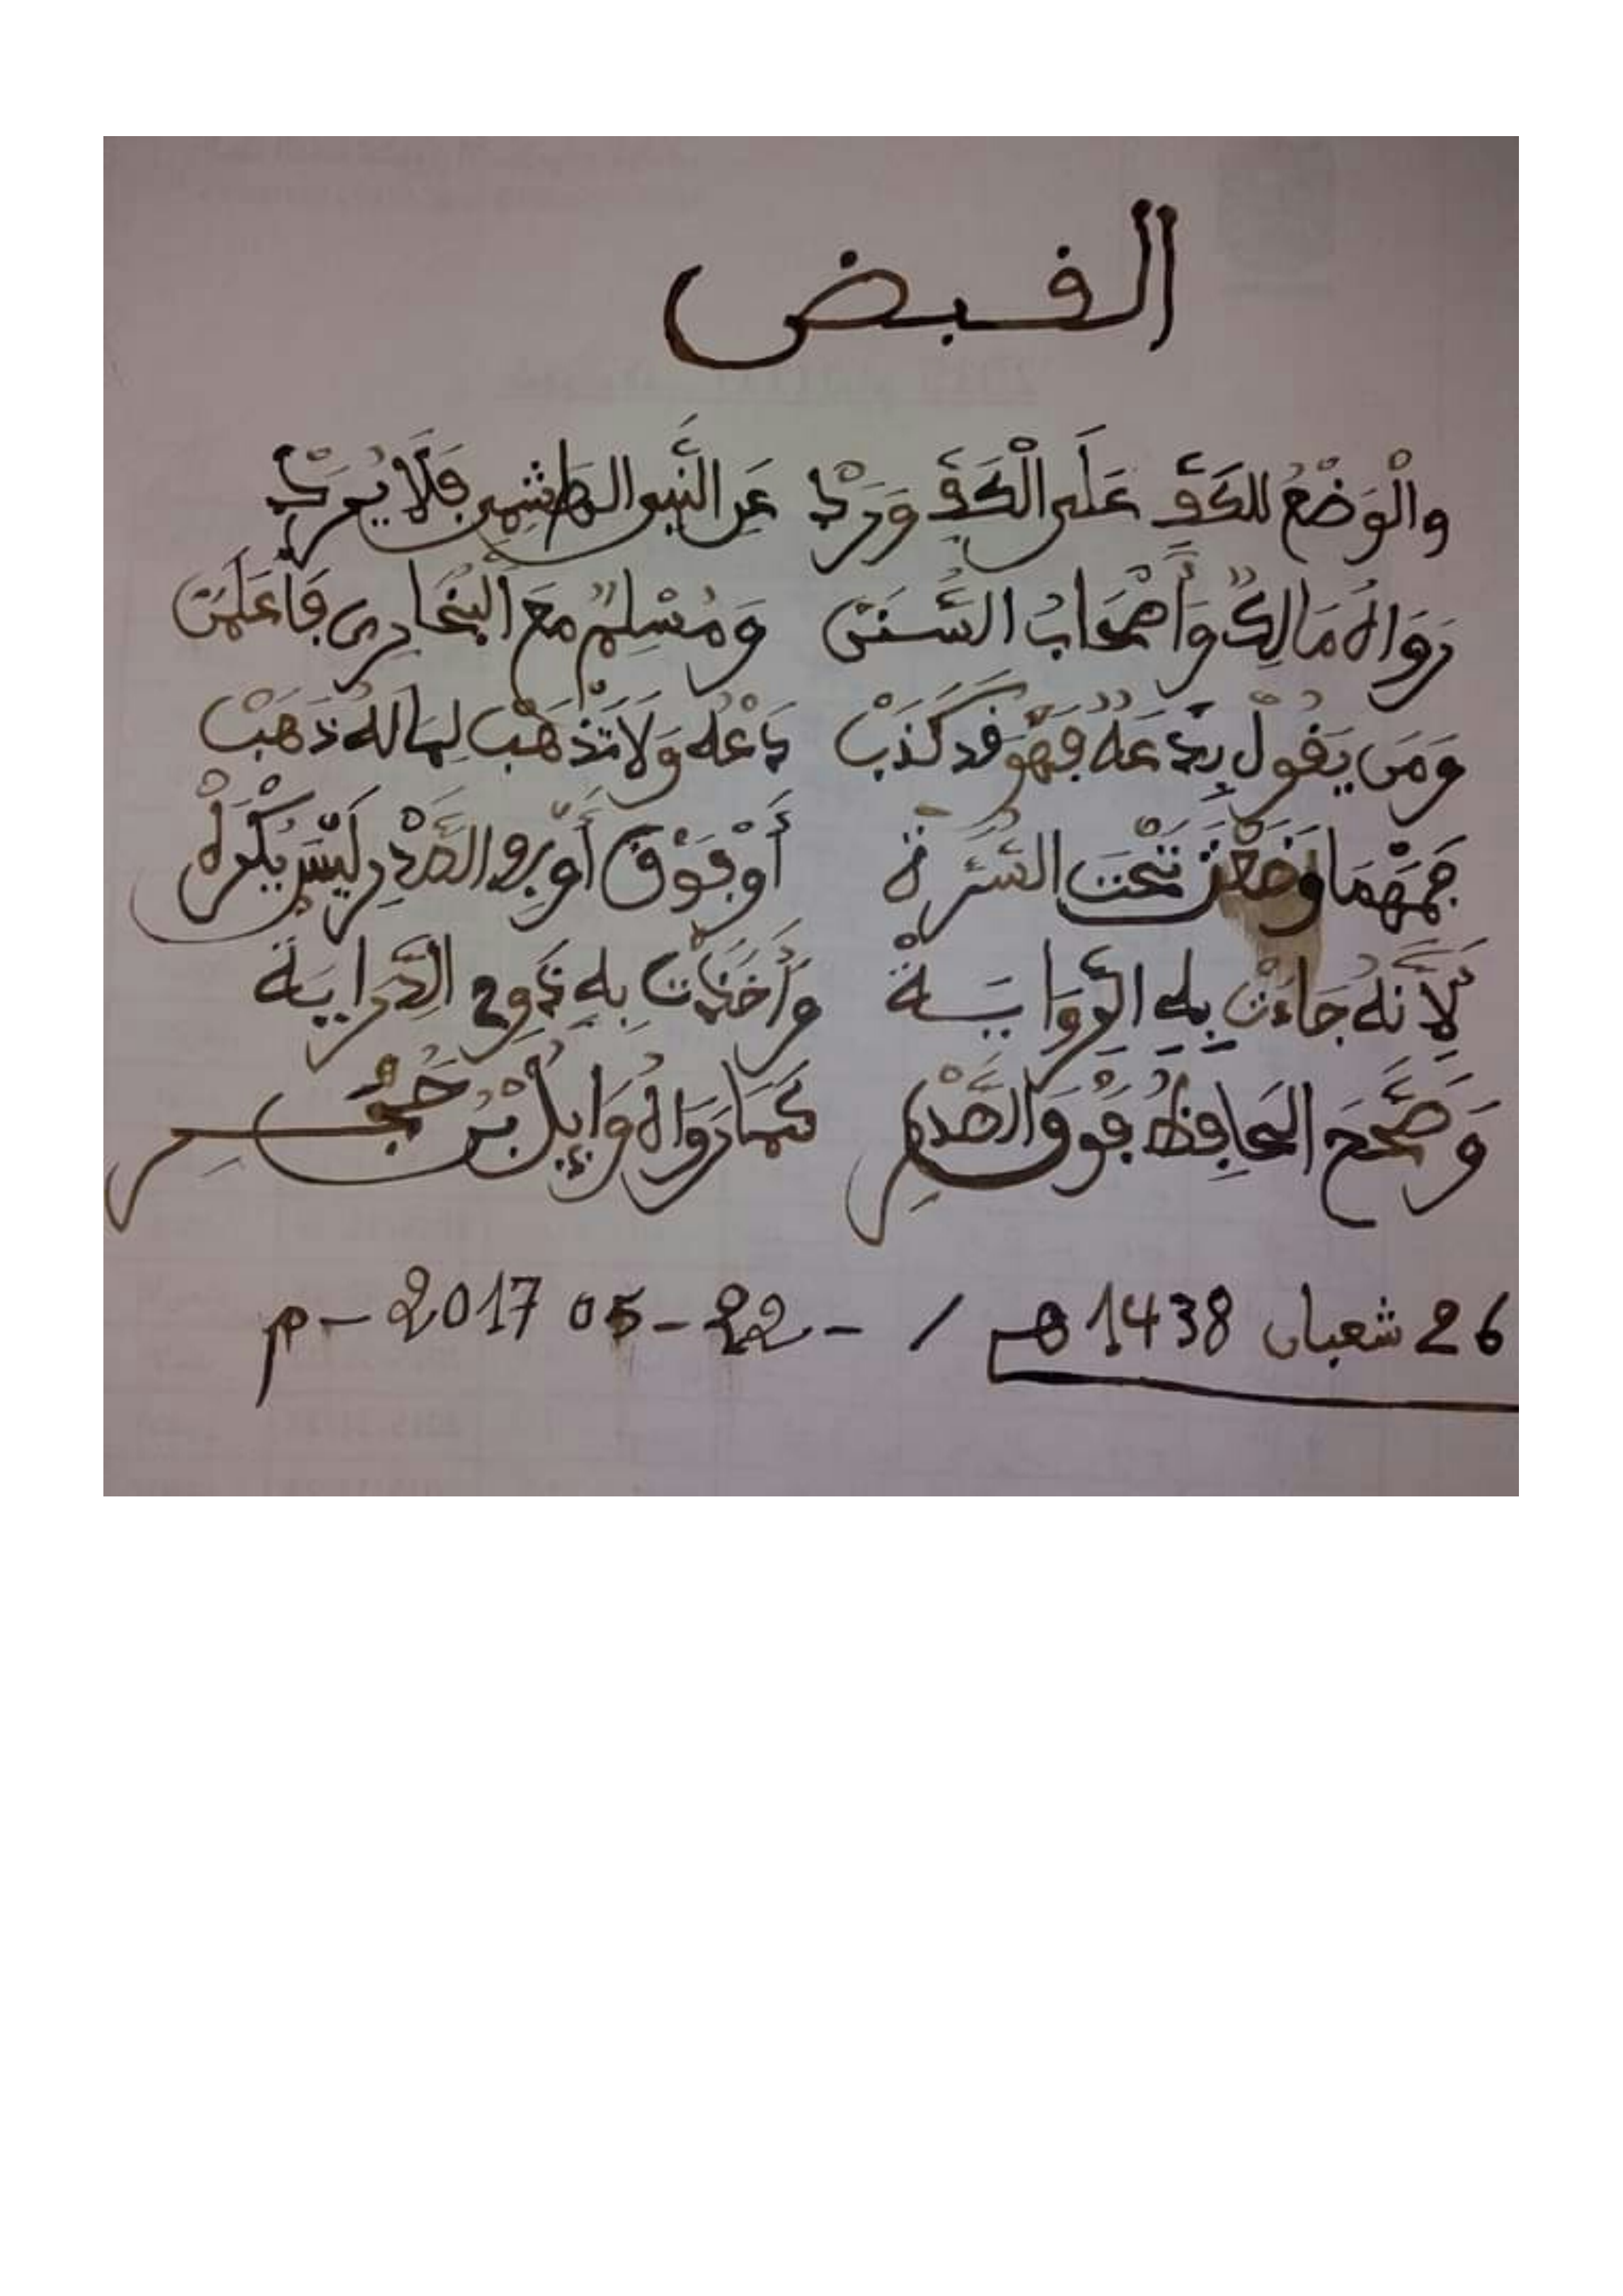 القبض
والْوَضْعُ للكَفِّ عَلَى الْكَفِّ وَرَدْ عَنِ النَّبِي الهَاشِمِي فَلَا يُرَدْ
رَوَاهُ مَالِكٌ وَأَصْحَابُ السُّنَنْ وَمُسْلِمٌ مَعَ الْبُخَارِي فَاعْلَمَنْ
وَمَن يَقُولْ بِدْعَةٌ فَهْوَ قَد كَذَبْ دَعْهُ وَلَا تَذْهَبْ لِمَا لَهُ ذَهَبْ
فَمَهْمَا وَضَعْتَ تَحْتَ السُّرَّةْ أَوْ فَوْقُ أَوْ في الصَّدْرِ لَيْسَ يُكْرَهْ
لِأَنَّهُ جَاءَتْ بِهِ الرِّوَايَةْ وَأَخَذَتْ بِهِ ذَوو الدِّرَايَة
وَصَحَّحَ الحَافِظُ فَوْقَ الصَّدْرِ كَمَا رَوَاهُ وَائِلُ بْنُ حُجْرِ
26 شعبان 1438 هـ / - 22 - 05 2017 - م